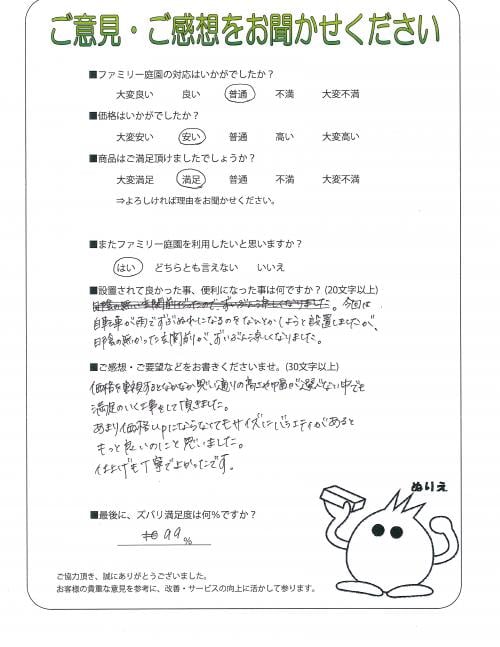 ご意見・ご感想をお聞かせください
■ファミリー庭園の対応はいかがでしたか？
大変良い 良い 普通 不満 大変不満
■価格はいかがでしたか？
大変安い 安い 普通 高い 大変高い
■商品はご満足頂けましたでしょうか？
大変満足 満足 普通 不満 大変不満
⇒よろしければ理由をお聞かせください。
■またファミリー庭園を利用したいと思いますか？
はい どちらとも言えない いいえ
■設置されて良かった事、便利になった事は何ですか？(20文字以上)
日陰の無い玄関前だったので、ずいぶん涼しくなりました。今回は
自転車が雨でずぶぬれになるのをなんとかしようと設置しましたが、
日陰の無かった玄関前が、ずいぶん涼しくなりました。
■ご感想・ご要望などをお書きくださいませ。(30文字以上)
価格を重視するとなかなか思い通りの高さや幅が選べない中でも
満足のいく工事をして頂きました。
あまり価格upにならなくてもサイズにバラエティがあると
もっと良いのにと思いました。
仕上げも丁寧で良かったです。
ぬりえ
■最後に、ズバリ満足度は何％ですか？
99％
ご協力頂き、誠にありがとうございました。
お客様の貴重な意見を参考に、改善・サービスの向上に活かして参ります。